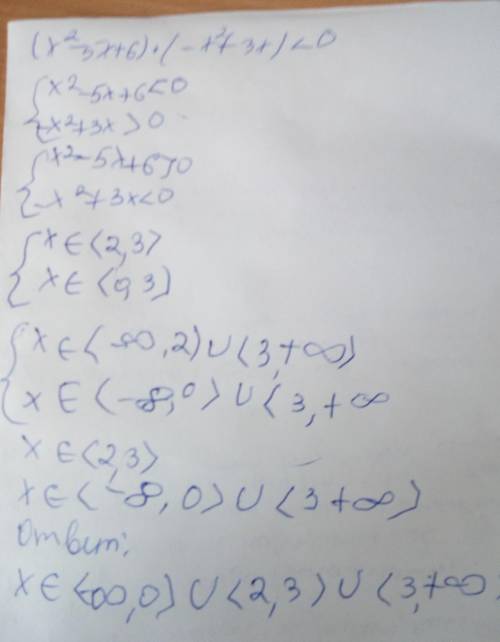 (x²-3x+6)·(-x²+3x)<0
{x²-5x+6<0
-x²+3x>0
{x²-5x+6>0
-x²+3x<0
{x∈<2,3>
x∈<0,3)
{x∈<-∞,2)∪<3,+∞)
x∈<-∞,0>∪<3,+∞
x∈<2,3>
x∈<-∞,0>∪<3+∞>
Ответ:
x∈<-∞,0>∪<2,3>∪<3,+∞.